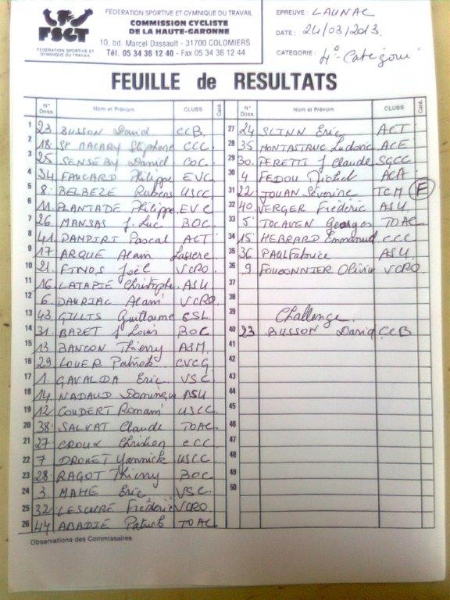 FSGT
FEDERATION SPORTIVE ET
GYMNIQUE DU TRAVAIL
FEDERATION SPORTIVE ET GYMNIQUE DU TRAVAIL
COMMISSION CYCLISTE
DE LA HAUTE-GARONNE
10, bd. Marcel Dassault - 31700 COLOMIERS
Tél. 05 34 36 12 40 - Fax 05 34 36 12 44
EPREUVE : LAUNAC
DATE : 24/03/2013.
CATEGORIE : 4e Catégorie
FEUILLE de RESULTATS
N° Doss. Nom et Prénom CLUBS
1 23 BUSSON David CCB
2 18 St MACARY Stéphane CCC
3 25 SENSEBY Daniel COC
4 34 FAUCARD Philippe EVC
5 8 BELBEZE Rubens USCC
6 11 PLANTADE Philippe EVC
7 26 MANSAS J. Luc BOC
8 41 DANDIRT Pascal ACT
9 17 ARQUE Alain Lasserre
10 21 FINOS Joël VCRO
11 16 LATAPIE Christophe ASU
12 6 DAURIAC Alain VCRO
13 43 GILLIS Guillaume CSL
14 31 RAZET J Louis BOC
15 13 BANCON Thierry ASM
16 29 LOUER Patrick CVCG
17 1 GAVALDA Eric VSC
18 14 NADAUD Dominique ASU
19 12 COUDERT Romain USCC
20 38 SALVAT Claude TOAC
21 27 CROUX Christian CCC
22 7 DROUET Yannick USCC
23 28 RAGOT Thierry BOC
24 3 MAHE Eric VSC
25 32 LESCURE Frédéric VCRO
26 44 ABADIE Patrick TOAC
N° Doss. Nom et Prénom CLUBS Caté.
27 24 SLINN Eric ACT
28 35 MONTASTRUC Ludovic ACE
29 30 PERETTI J Claude SGCC
30 4 FEDOU Michel ACA
31 22 JOUAN Séverine TCM F
32 40 VERGER Frédéric ASU
33 5 TOCAVEN Georges TOAC
34 15 HEBRARD Emmanuel CCC
35 36 PAUL Fabrice ASU
36 9 FOURONNIER Olivier VCRO
37
38
39 Challenge
40 23 BUSSON David CCB
41
42
43
44
45
46
47
48
49
50
Observations des Commissaires